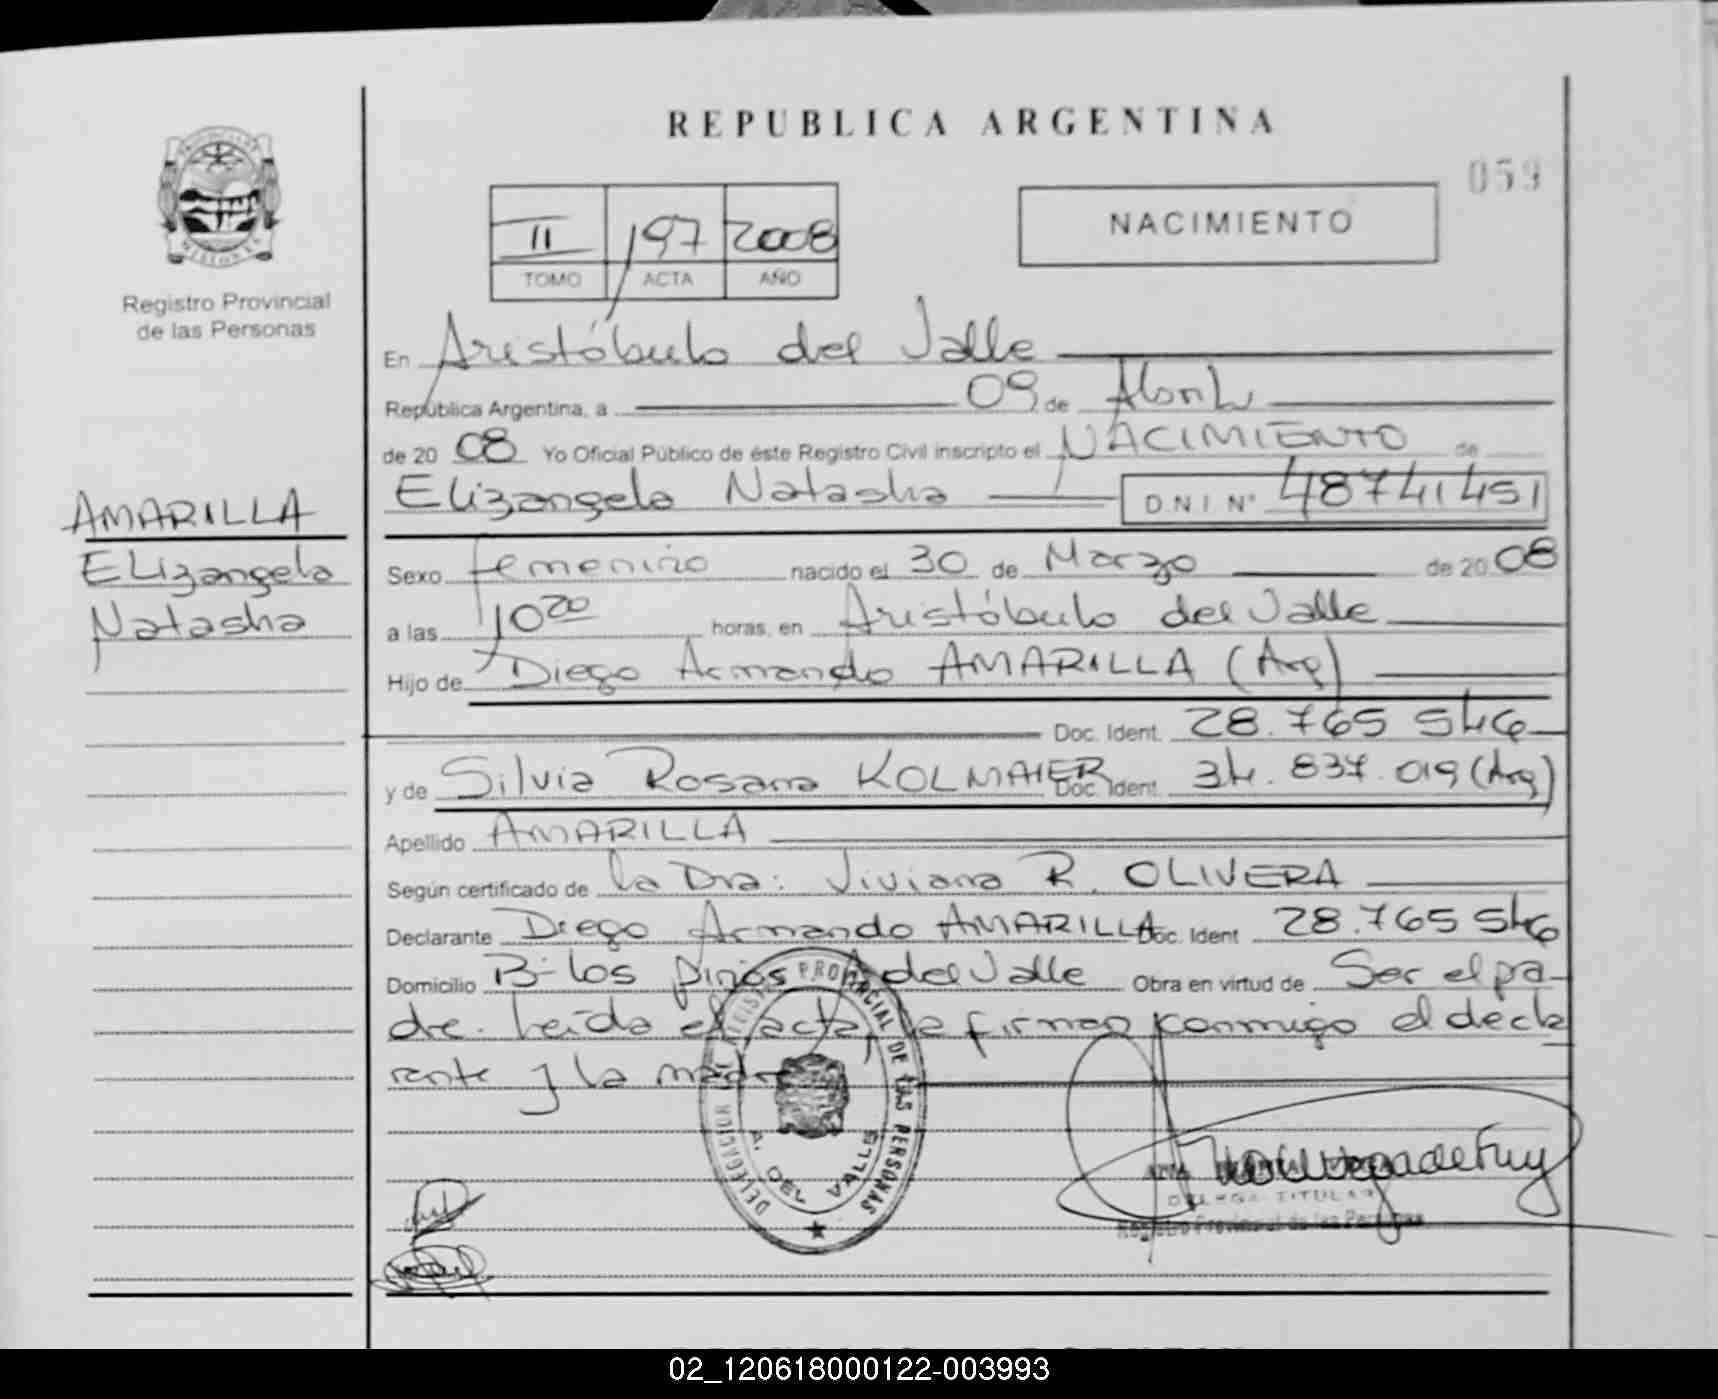 REPUBLICA ARGENTINA
059
II 197 2008
TOMO ACTA AÑO
NACIMIENTO
Registro Provincial
de las Personas
En Aristóbulo del Valle
República Argentina, a 09 de Abril
de 20 08 Yo Oficial Público de éste Registro Civil inscripto el NACIMIENTO de
Elizangela Natasha D.N.I. N° 48741451
AMARILLA
Elizangela
Natasha
Sexo femenino nacido el 30 de Marzo de 20 08
a las 10 20 horas, en Aristóbulo del Valle
Hijo de Diego Armando AMARILLA (Arg)
Doc. Ident. 28.765 546
y de Silvia Rosana KOLMAIER Doc. Ident. 34.837.019 (Arg)
Apellido AMARILLA
Según certificado de la Dra: Viviana R. OLIVERA
Declarante Diego Armando AMARILLA Doc. Ident 28.765 546
Domicilio B- Los pinos A del Valle Obra en virtud de Ser el pa-
dre. Leída el acta, la firman conmigo el decla
rante y la madre
DELEGACION DEL REGISTRO PROVINCIAL DE LAS PERSONAS
A. DEL VALLE
TITULAR
Registro Provincial de las Personas
02_120618000122-003993